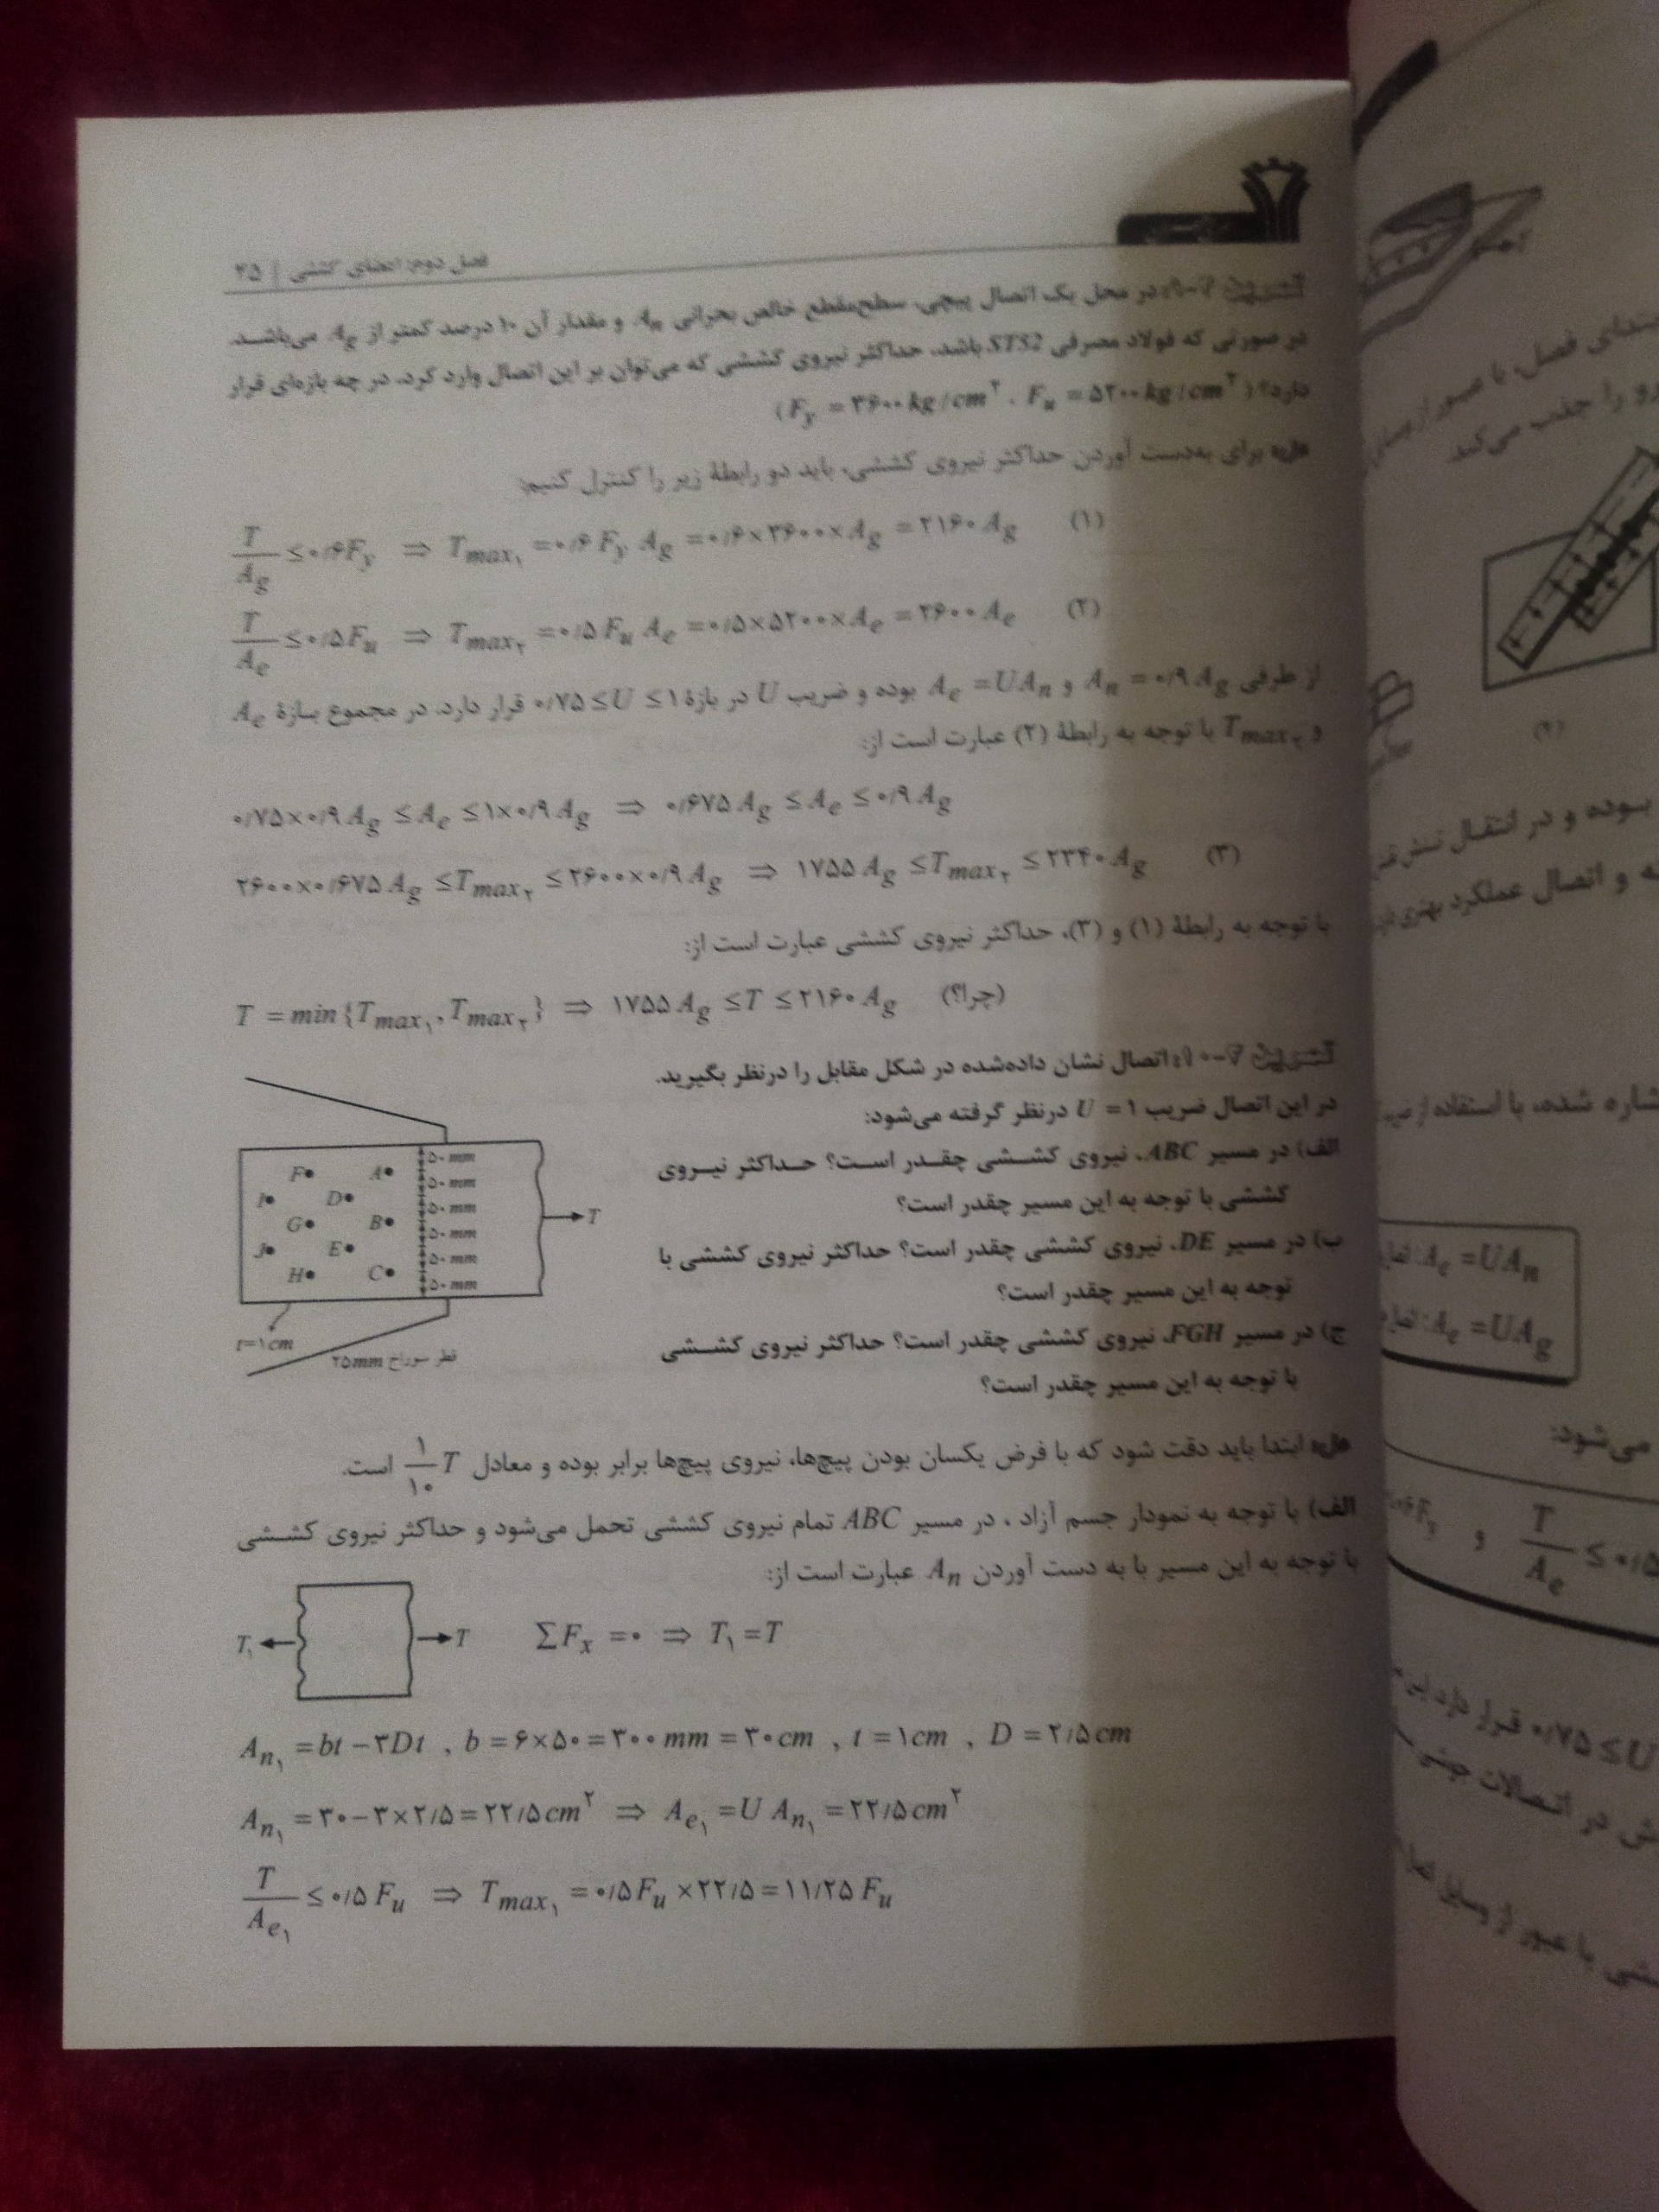 فصل دوم: اعضای کششی | ۲۵
تمرین ۲-۹: در محل یک اتصال پیچی، سطح‌مقطع خالص بحرانی Aₙ و مقدار آن ۱۰ درصد کمتر از A_g می‌باشد.
در صورتی که فولاد مصرفی ST52 باشد، حداکثر نیروی کششی که می‌توان بر این اتصال وارد کرد، در چه بازه‌ای قرار
دارد؟ (F_y = ۳۶۰۰ kg/cm², F_u = ۵۲۰۰ kg/cm²)
حل: برای به‌دست آوردن حداکثر نیروی کششی، باید دو رابطهٔ زیر را کنترل کنیم:
T/A_g ≤ ۰/۶F_y ⇒ T_max₁ = ۰/۶ F_y A_g = ۰/۶×۳۶۰۰×A_g = ۲۱۶۰ A_g (۱)
T/A_e ≤ ۰/۵F_u ⇒ T_max₂ = ۰/۵ F_u A_e = ۰/۵×۵۲۰۰×A_e = ۲۶۰۰ A_e (۲)
از طرفی A_n = ۰/۹ A_g و A_e = UA_n بوده و ضریب U در بازهٔ ۰/۷۵ ≤ U ≤ ۱ قرار دارد. در مجموع بازهٔ A_e
و T_max₂ با توجه به رابطهٔ (۲) عبارت است از:
۰/۷۵×۰/۹ A_g ≤ A_e ≤ ۱×۰/۹ A_g ⇒ ۰/۶۷۵ A_g ≤ A_e ≤ ۰/۹ A_g
۲۶۰۰×۰/۶۷۵ A_g ≤ T_max₂ ≤ ۲۶۰۰×۰/۹ A_g ⇒ ۱۷۵۵ A_g ≤ T_max₂ ≤ ۲۳۴۰ A_g (۳)
با توجه به رابطهٔ (۱) و (۳)، حداکثر نیروی کششی عبارت است از:
T = min{T_max₁, T_max₂} ⇒ ۱۷۵۵ A_g ≤ T ≤ ۲۱۶۰ A_g (چرا؟)
تمرین ۲-۱۰: اتصال نشان داده‌شده در شکل مقابل را درنظر بگیرید.
در این اتصال ضریب U = ۱ درنظر گرفته می‌شود:
الف) در مسیر ABC، نیروی کششی چقدر است؟ حداکثر نیروی
کششی با توجه به این مسیر چقدر است؟
ب) در مسیر DE، نیروی کششی چقدر است؟ حداکثر نیروی کششی با
توجه به این مسیر چقدر است؟
ج) در مسیر FGH، نیروی کششی چقدر است؟ حداکثر نیروی کششی
با توجه به این مسیر چقدر است؟
F A ۵۰ mm
I D ۵۰ mm
۵۰ mm
G B T
۵۰ mm
J E ۵۰ mm
H C ۵۰ mm
t=۱cm
قطر سوراخ ۲۵mm
حل: ابتدا باید دقت شود که با فرض یکسان بودن پیچ‌ها، نیروی پیچ‌ها برابر بوده و معادل ۱/۱۰ T است.
الف) با توجه به نمودار جسم آزاد، در مسیر ABC تمام نیروی کششی تحمل می‌شود و حداکثر نیروی کششی
با توجه به این مسیر با به دست آوردن A_n عبارت است از:
T₁ T ∑F_x = ۰ ⇒ T₁ = T
A_n₁ = bt − ۳Dt , b = ۶×۵۰ = ۳۰۰ mm = ۳۰ cm , t = ۱cm , D = ۲/۵ cm
A_n₁ = ۳۰ − ۳×۲/۵ = ۲۲/۵ cm² ⇒ A_e₁ = U A_n₁ = ۲۲/۵ cm²
T/A_e₁ ≤ ۰/۵ F_u ⇒ T_max₁ = ۰/۵ F_u × ۲۲/۵ = ۱۱/۲۵ F_u
بتدای فصل، با عبور از
رو را جذب می‌کند.
(۲)
بوده و در انتقال تنش
ه و اتصال عملکرد بهتری
شاره شده، با استفاده از
A_e = UA_n
A_e = UA_g
می‌شود:
و T/A_e ≤ ۰/۵
۰/۷۵ ≤ U قرار دارد
ش در اتصالات جوشی
شی با عبور از وسایل